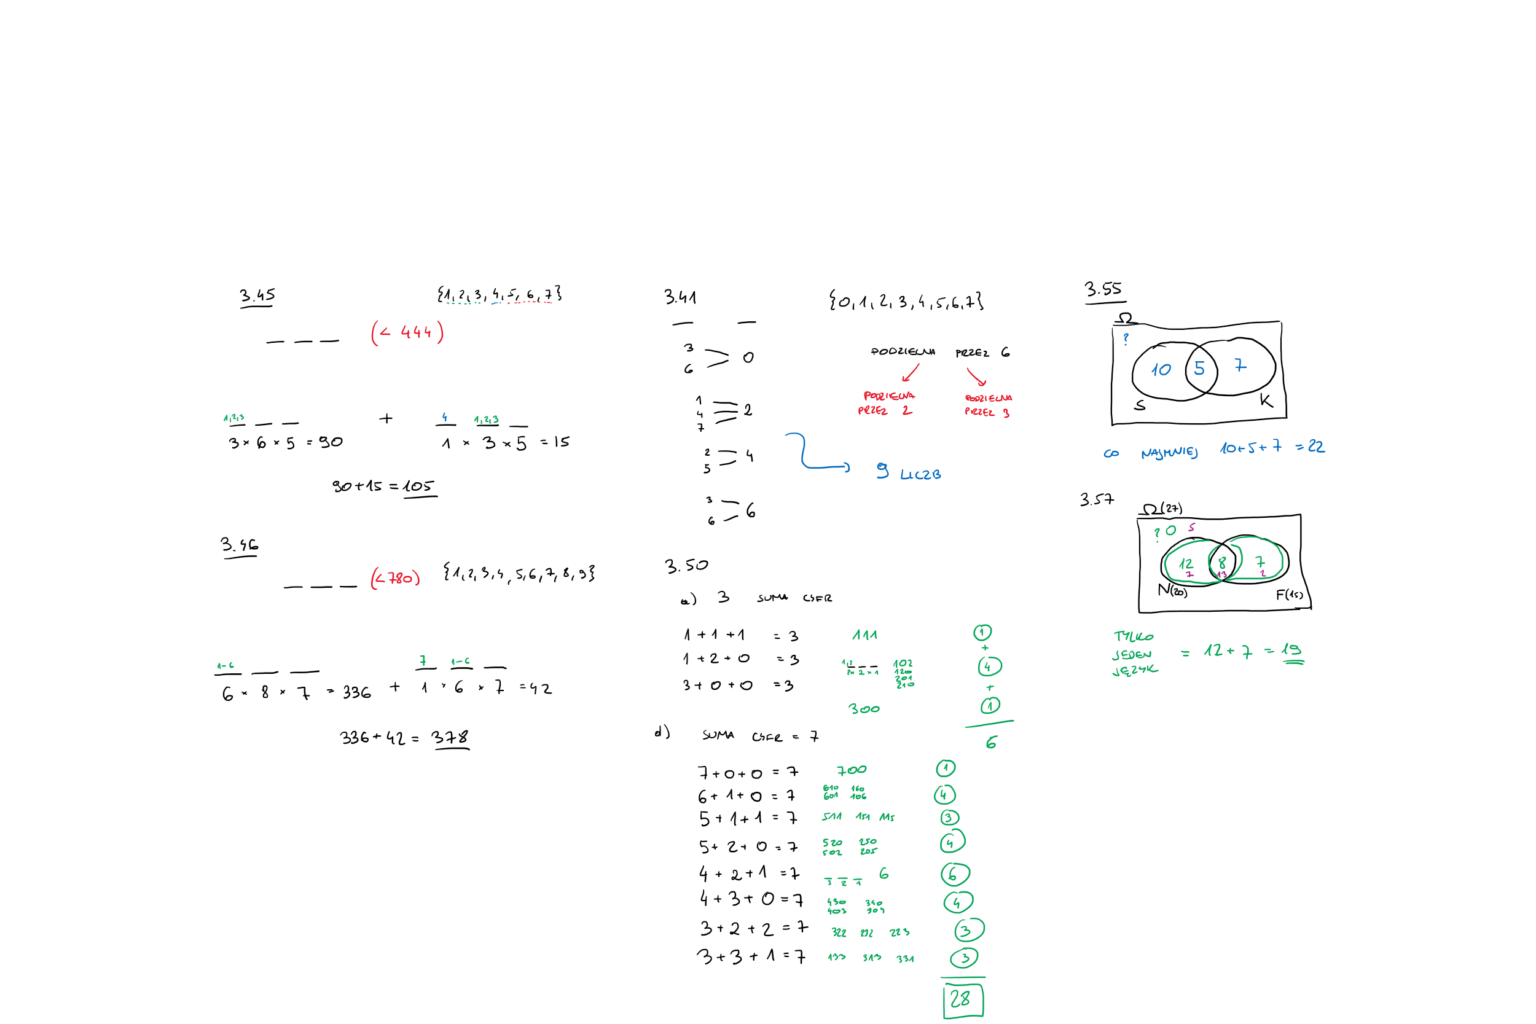 3.45
{1,2,3,4,5,6,7}
_ _ _ (< 444)
1,2,3 _ _ + 4 1,2,3 _
3 × 6 × 5 = 90
1 × 3 × 5 = 15
90+15 = 105
3.46
_ _ _ (<780) {1,2,3,4,5,6,7,8,9}
1-6 _ _ 7 1-6 _
6 × 8 × 7 = 336 + 1 × 6 × 7 = 42
336+42 = 378
3.41
{0,1,2,3,4,5,6,7}
_ _
3
6
0
1
4
7
2
2
5
4
3
6
6
PODZIELNA PRZEZ 6
PODZIELNA PRZEZ 2
PODZIELNA PRZEZ 3
9 LICZB
3.50
a) 3 SUMA CYFR
1 + 1 + 1 = 3 111 1
+
1 + 2 + 0 = 3 1,2 _ _ 102 4
2× 2 × 1 120
201
210
+
3 + 0 + 0 = 3
300 1
6
d) SUMA CYFR = 7
7 + 0 + 0 = 7 700 1
6 + 1 + 0 = 7 610 160 4
601 106
5 + 1 + 1 = 7 511 151 115 3
5 + 2 + 0 = 7 520 250 4
502 205
4 + 2 + 1 = 7 _ _ _ 6 6
3 2 1
4 + 3 + 0 = 7 430 340 4
403 304
3 + 2 + 2 = 7 322 232 223 3
3 + 3 + 1 = 7 133 313 331 3
28
3.55
Ω
?
10 5 7
S K
CO NAJMNIEJ 10+5+7 = 22
3.57
Ω(27)
? 0 5
12 8 7
7 13 2
N(20) F(15)
TYLKO
JEDEN = 12 + 7 = 19
JĘZYK